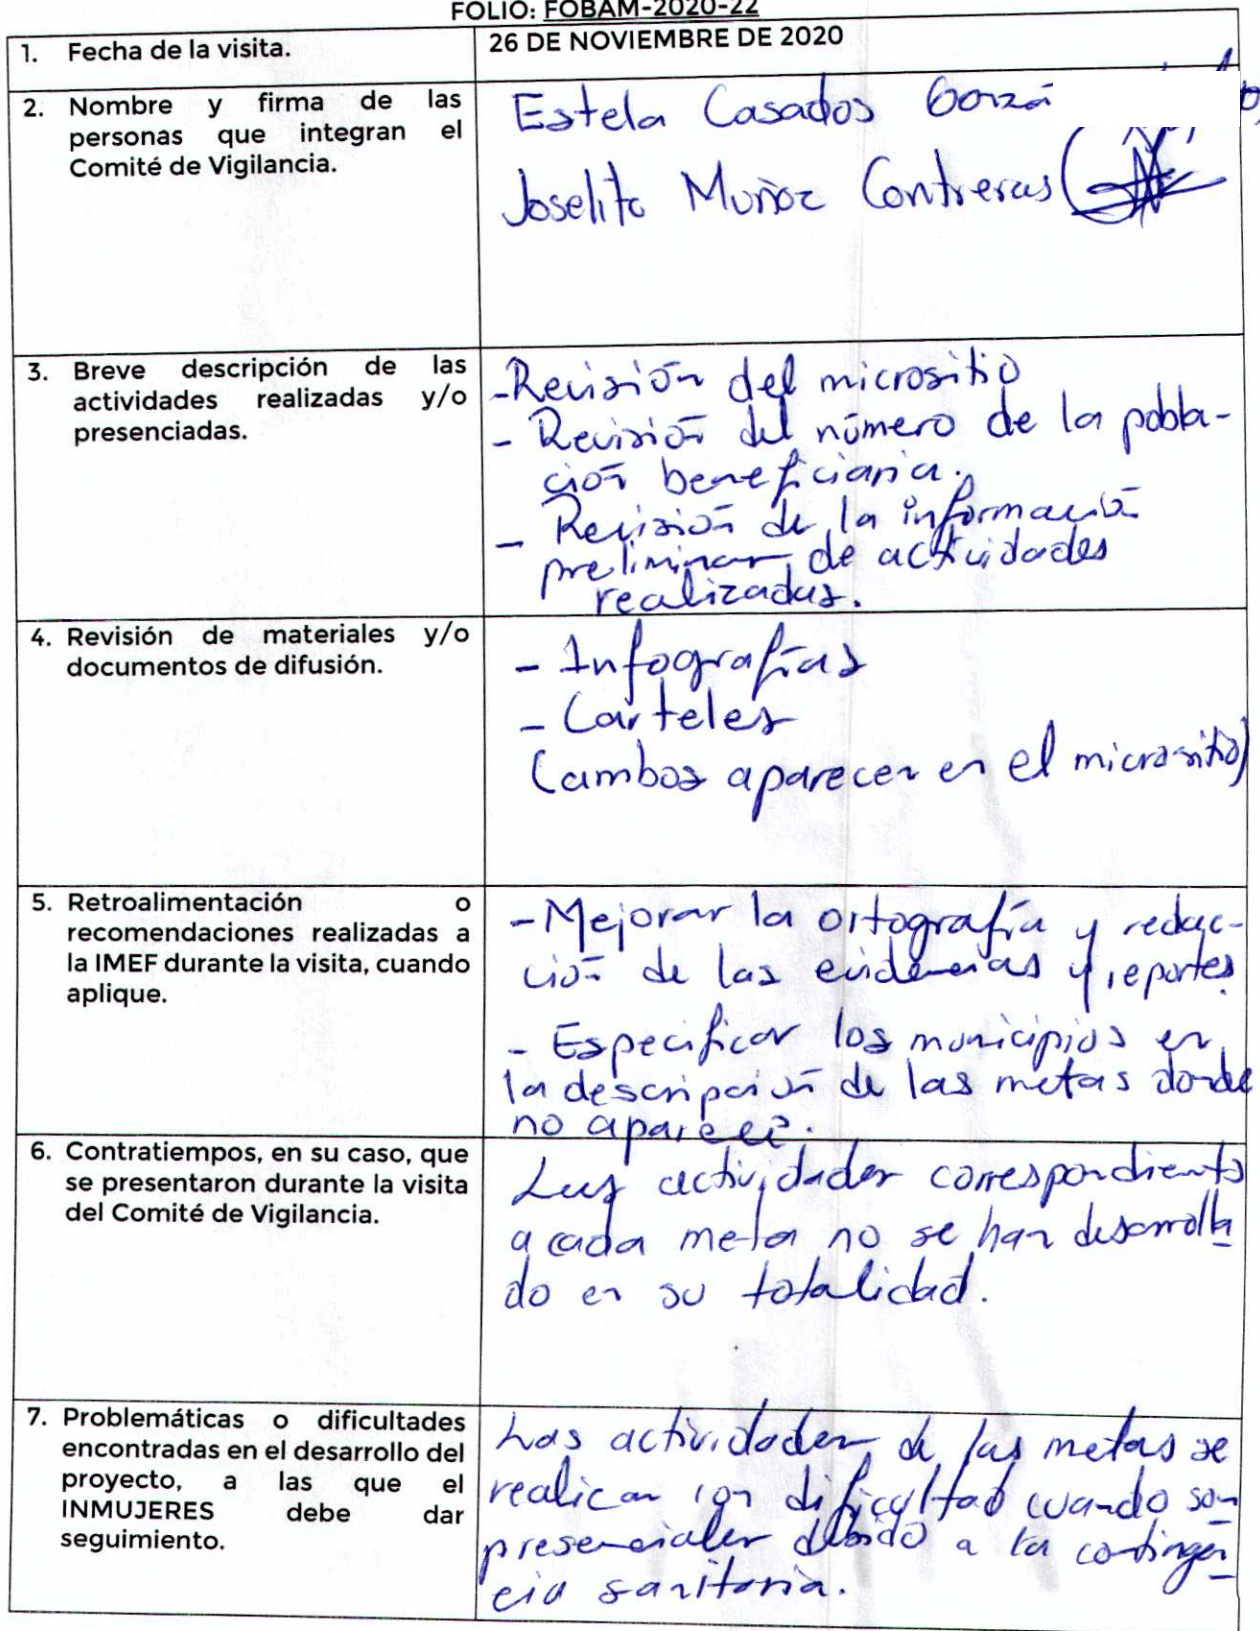 FOLIO: FOBAM-2020-22
1. Fecha de la visita.
26 DE NOVIEMBRE DE 2020
2. Nombre y firma de las
personas que integran el
Comité de Vigilancia.
Estela Casados Gonzá
Joselito Muñoz Contreras
3. Breve descripción de las
actividades realizadas y/o
presenciadas.
- Revisión del micrositio
- Revisión del número de la pobla-
ción beneficiaria.
- Revisión de la información
preliminar de actividades
realizadas.
4. Revisión de materiales y/o
documentos de difusión.
- Infografías
- Carteles
(ambos aparecen en el micrositio)
5. Retroalimentación o
recomendaciones realizadas a
la IMEF durante la visita, cuando
aplique.
- Mejorar la ortografía y redac-
ción de las evidencias y reportes.
- Especificar los municipios en
la descripción de las metas donde
no aparece.
6. Contratiempos, en su caso, que
se presentaron durante la visita
del Comité de Vigilancia.
Las actividades correspondientes
a cada meta no se han desarrolla
do en su totalidad.
7. Problemáticas o dificultades
encontradas en el desarrollo del
proyecto, a las que el
INMUJERES debe dar
seguimiento.
Las actividades de las metas se
realizan con dificultad cuando son
presenciales debido a la contingen
cia sanitaria.